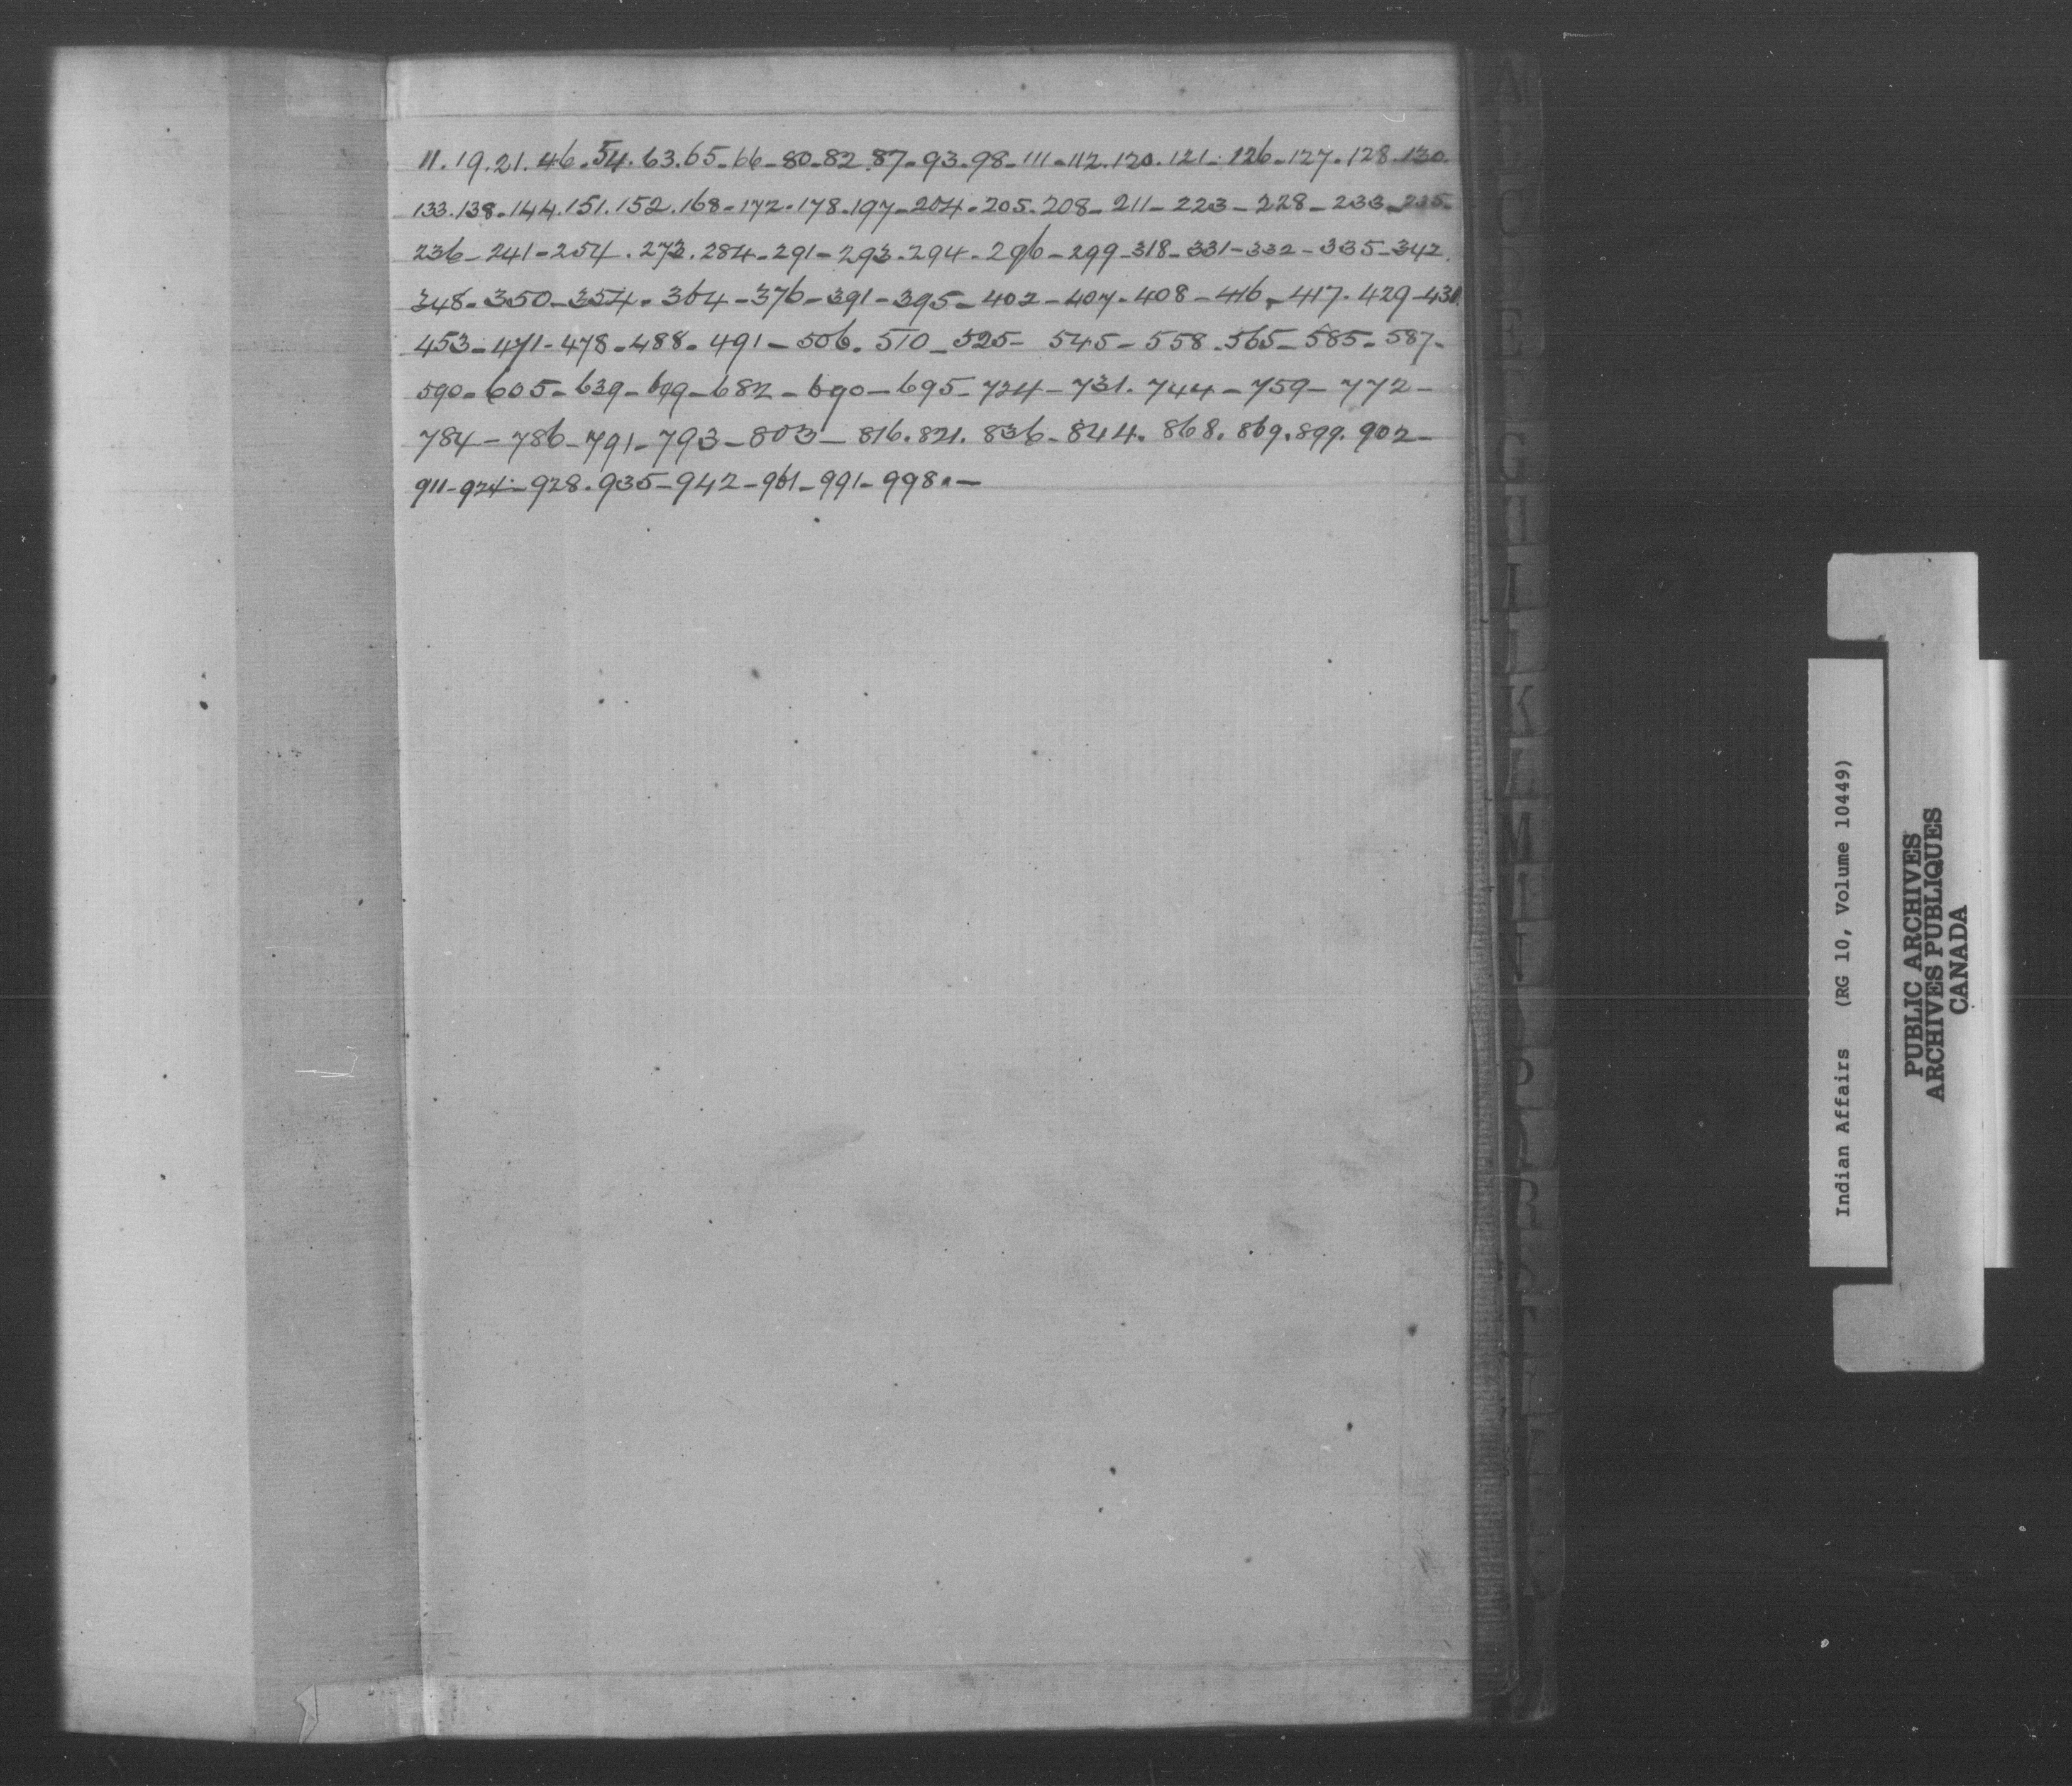 11.19.21.46.54.63.65-66-80-82.87-93-98-111-112.120.121-126-127.128.130.
133.138-144.151.152.168-172-178.197-204-205.208-211-223-228-233-235-
236-241-254.273.284-291-293-294-296-299-318-331-332-335-342.
348-350-354-364-376-391-395-402-407-408-416-417.429-431
453-471-478-488-491-506.510-525-545-558-565-585-587-
590-605-639-682-690-695-724-731.744-759-772-
784-786-791-793-803-816.821.836-844.868.869.899.902-
911-924-928.935-942-961-991-998.-
A
C
E
G
H
I
K
L
M
N
P
R
Indian Affairs (RG 10, Volume 10449)
PUBLIC ARCHIVES
ARCHIVES PUBLIQUES
CANADA